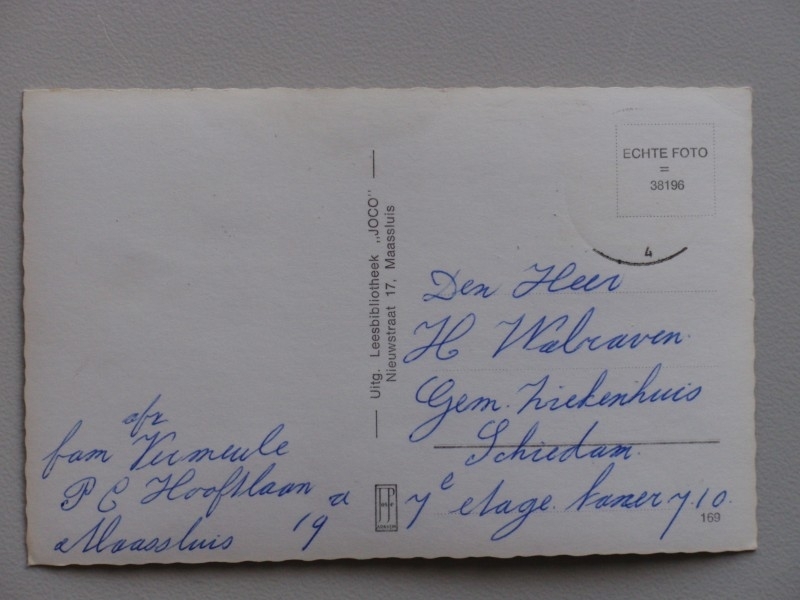 ECHTE FOTO
=
38196
4
Uitg. Leesbibliotheek „JOCO"
Nieuwstraat 17, Maassluis
Den Heer
H Walraven
Gem. Ziekenhuis
Schiedam.
7e etage kamer 710.
169
afz
fam Vermeule
P C Hooftlaan
19 a
Maassluis